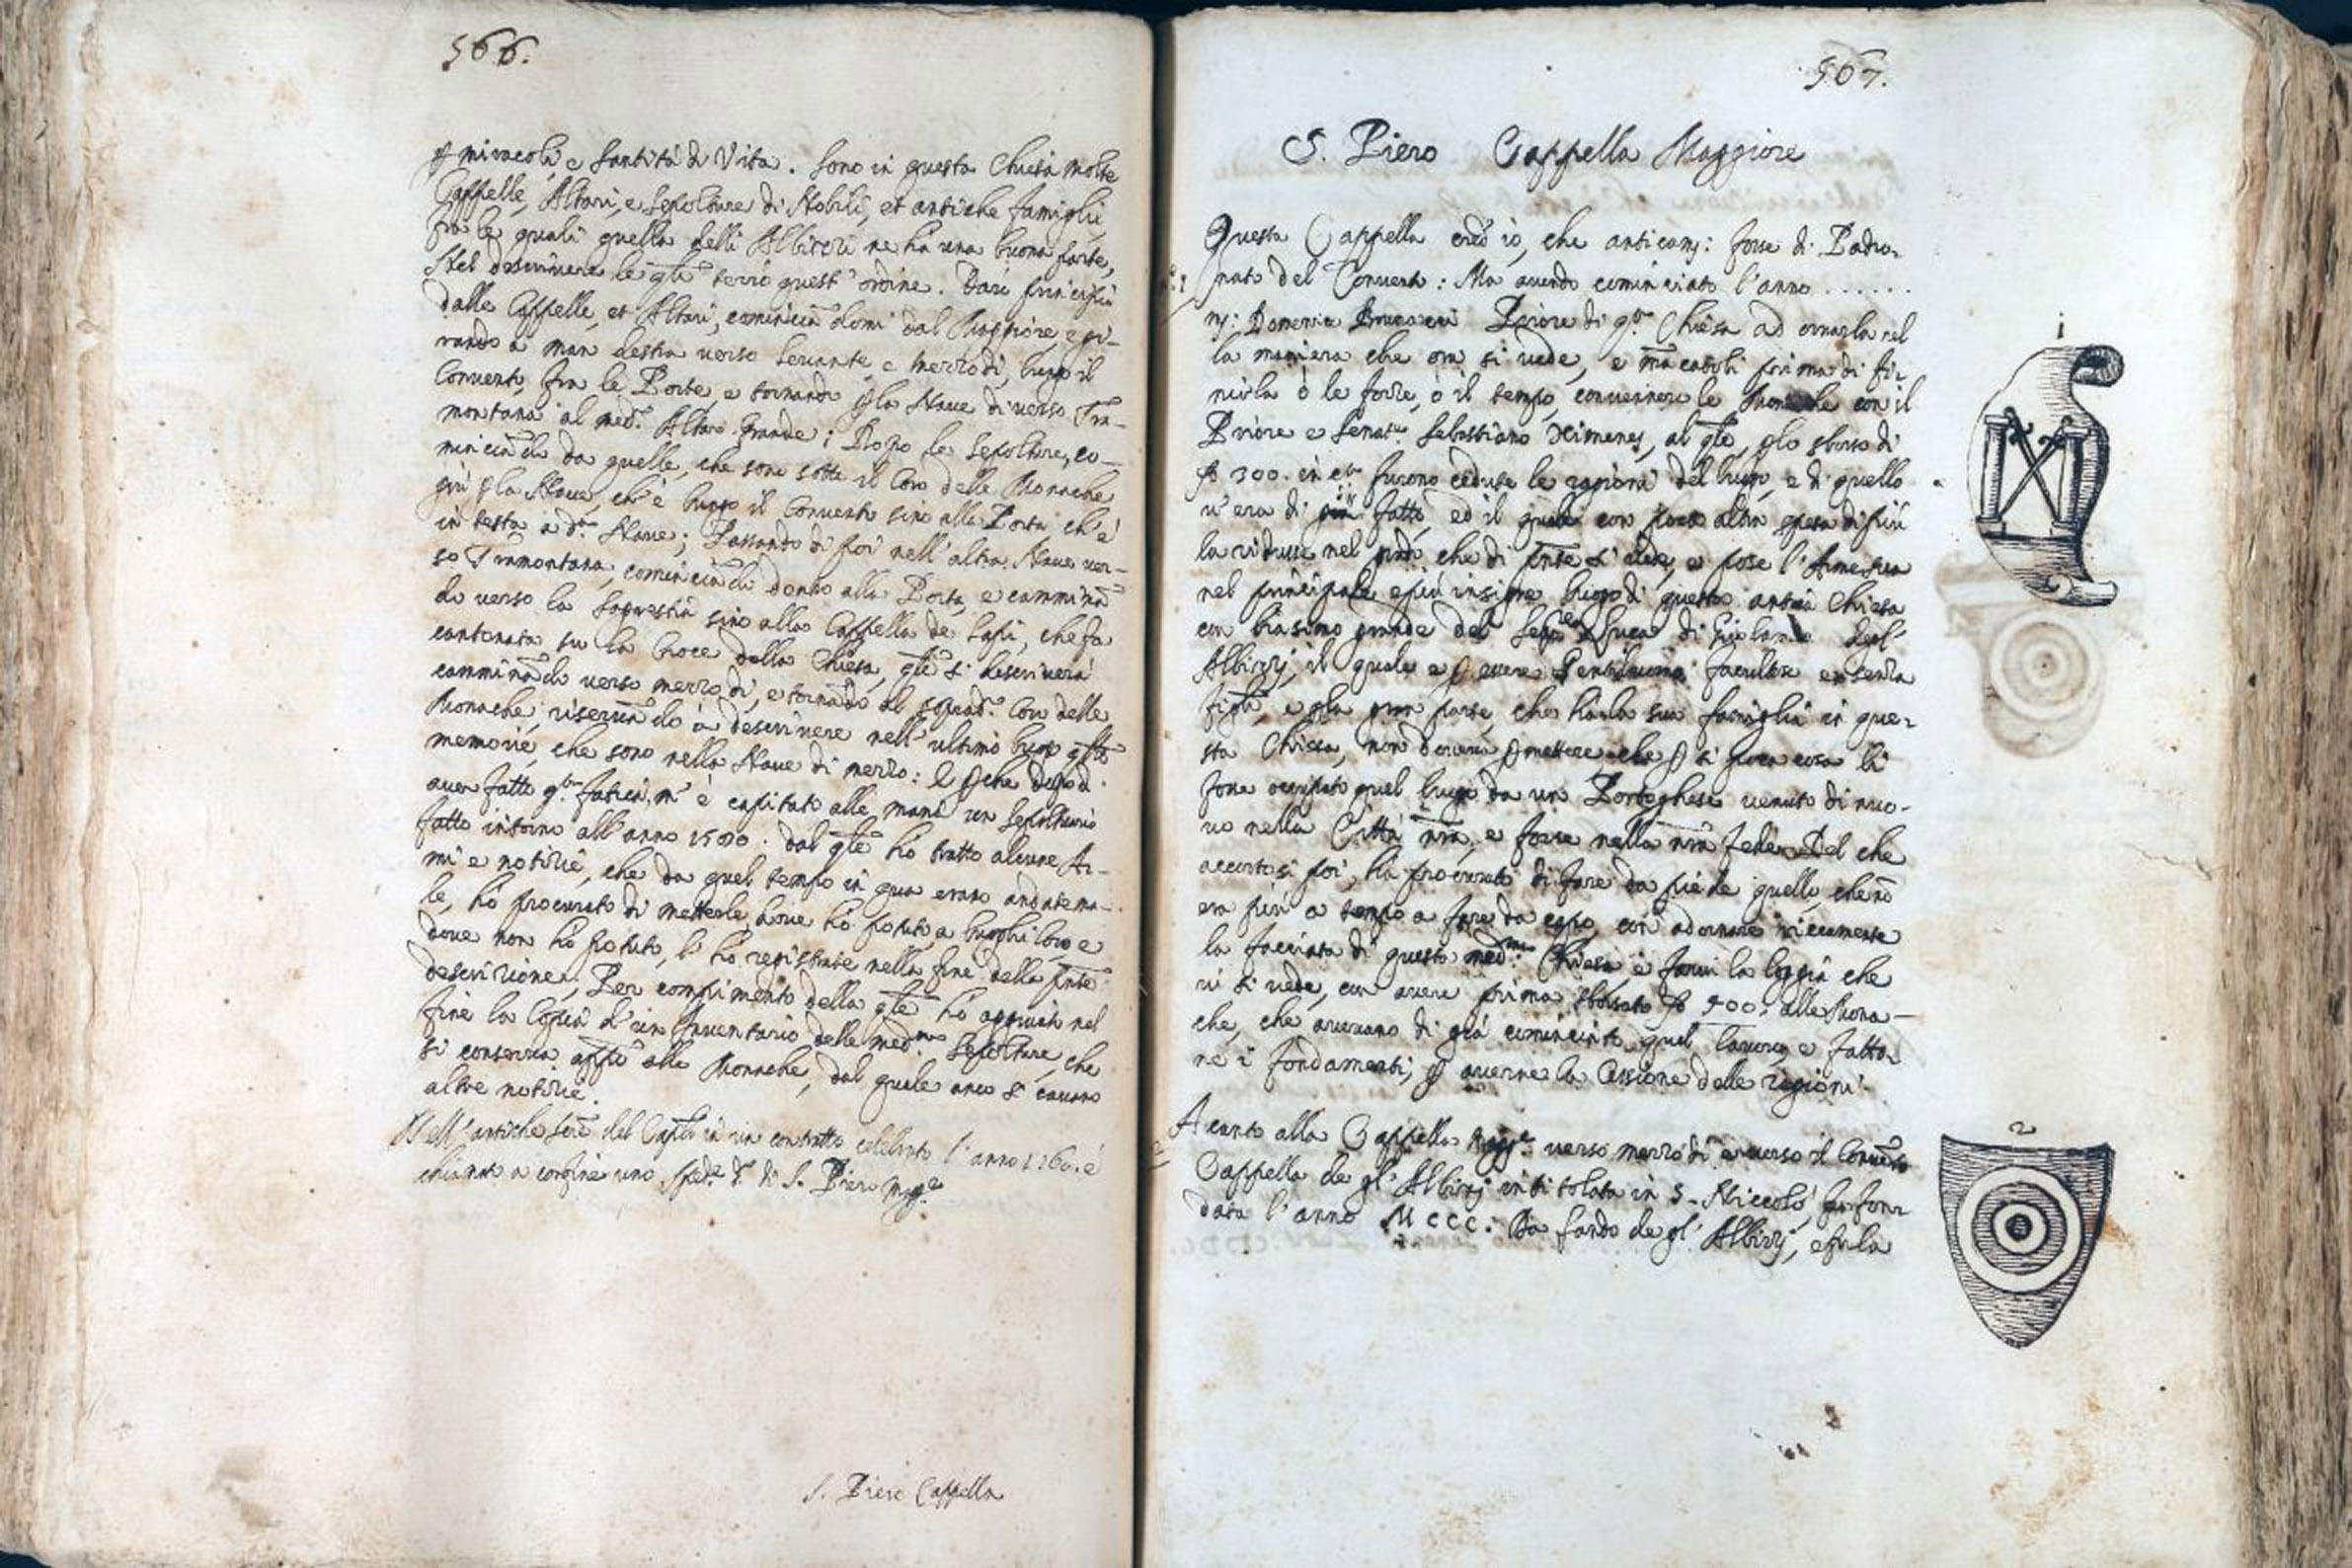 566.
miracoli, e Santità di Vita. Sono in questa Chiesa molte
Cappelle, Altari, e Sepolture di Nobili, et antiche famiglie,
fra le quali quella delli Albizzi ne ha una buona parte,
Nel descrivere le qli terrò quest' ordine. Darò principio
dalle Cappelle, et Altari, cominciandomi dal Maggiore, e gi-
rando a man destra verso Levante, e mezzodì, lungo il
Convento, fra le Porte, e tornando la Nave di verso Tra-
montana al med.o Altare grande; Dopo le Sepolture, co-
minciando da quelle, che sono sotto il Coro delle Monache
giù la Nave, ch'è lungo il Convento sino alla Porta ch'è
in testa a d.a Nave; Passando di poi nell' altra Nave ver-
so Tramontana, cominciando dalla Porta, e cammina
do verso la Sagrestia sino alla Cappella de' che fa
cantonata su la Croce della Chiesa, qle si descriverà
camminado verso mezzodì, e tornado al Coro delle
Monache, riservado à descrivere nell' ultimo luogo
memorie, che sono nella Nave di mezzo: E
aver fatto q.ta fatica, m' è capitato alle mani un Sepoltuario
fatto intorno all' anno 1580. dal qle ho tratto alcune Ar-
mi e notizie, che da quel tempo in qua erano andate ma-
le, hò procurato di metterle dove hò potuto a luoghi loro, e
dove non hò potuto, l' hò registrate nella fine della pnte
descrizione, Per compimento della qle hò aggiunto nel
fine la Copia d' un Inventario delle med.me Sepolture, che
si conserva app.o alle Monache, dal quale anco si cavano
altre notizie.
antiche del Cap.lo in un contratto celebrato l' anno 1260. è
chiamato a confine uno di S. Piero Mag.e
S. Piero Cappella
567.
S. Piero Cappella Maggiore
Questa Cappella credo io, che anticam: fosse di Padro-
nato del Convento: Ma avendo cominciato l' anno ......
m: Domenico Priore di q.a Chiesa ad ornarla nel
la maniera che ora si vede, e macatoli prima di fi-
nirla ò le forze, ò il tempo, convennero le Monache con il
Priore e Senat.re Sebastiano Ximenes, al qle, lo sborso di
300. in furono cedute le ragioni del luogo, e di quello
v' era di già fatto, ed il quale con poca altra spesa di più
la ridusse nel modo che di pnte si vede, e pose l' Arme sua
nel principale e più insigne luogo di questa antica Chiesa
con biasimo grande del Luca di Girolamo degl'
Albizzj, il quale e essere Gentiluomo facultoso e senza
figli, e la gran parte, che ha la sua famiglia in que-
sta Chiesa, non doveva che si poca cosa li
fosse occupato quel luogo da un Portoghese venuto di nuo-
vo nella Città nra, e forse nella nra fede. Del che
accortosi poi, ha procurato di fare da piè de quello, che nō
era più a tempo a fare da capo, con adornare riccamente
la facciata di questa med.ma Chiesa, e farvi la loggia che
vi si vede, con avere prima sborsato 400. alle Mona-
che, che avevano di già cominciato quel lavoro, e fatto-
ne i fondamenti, averne la Cessione delle ragioni.
1
Acanto alla Cappella Magg.e verso mezzodì, e verso il Convento
Cappella de gl' Albizzj intitolata in S. Niccolò, fu fon-
data l' anno MCCC. Da de gl' Albizzj, e fu la
2